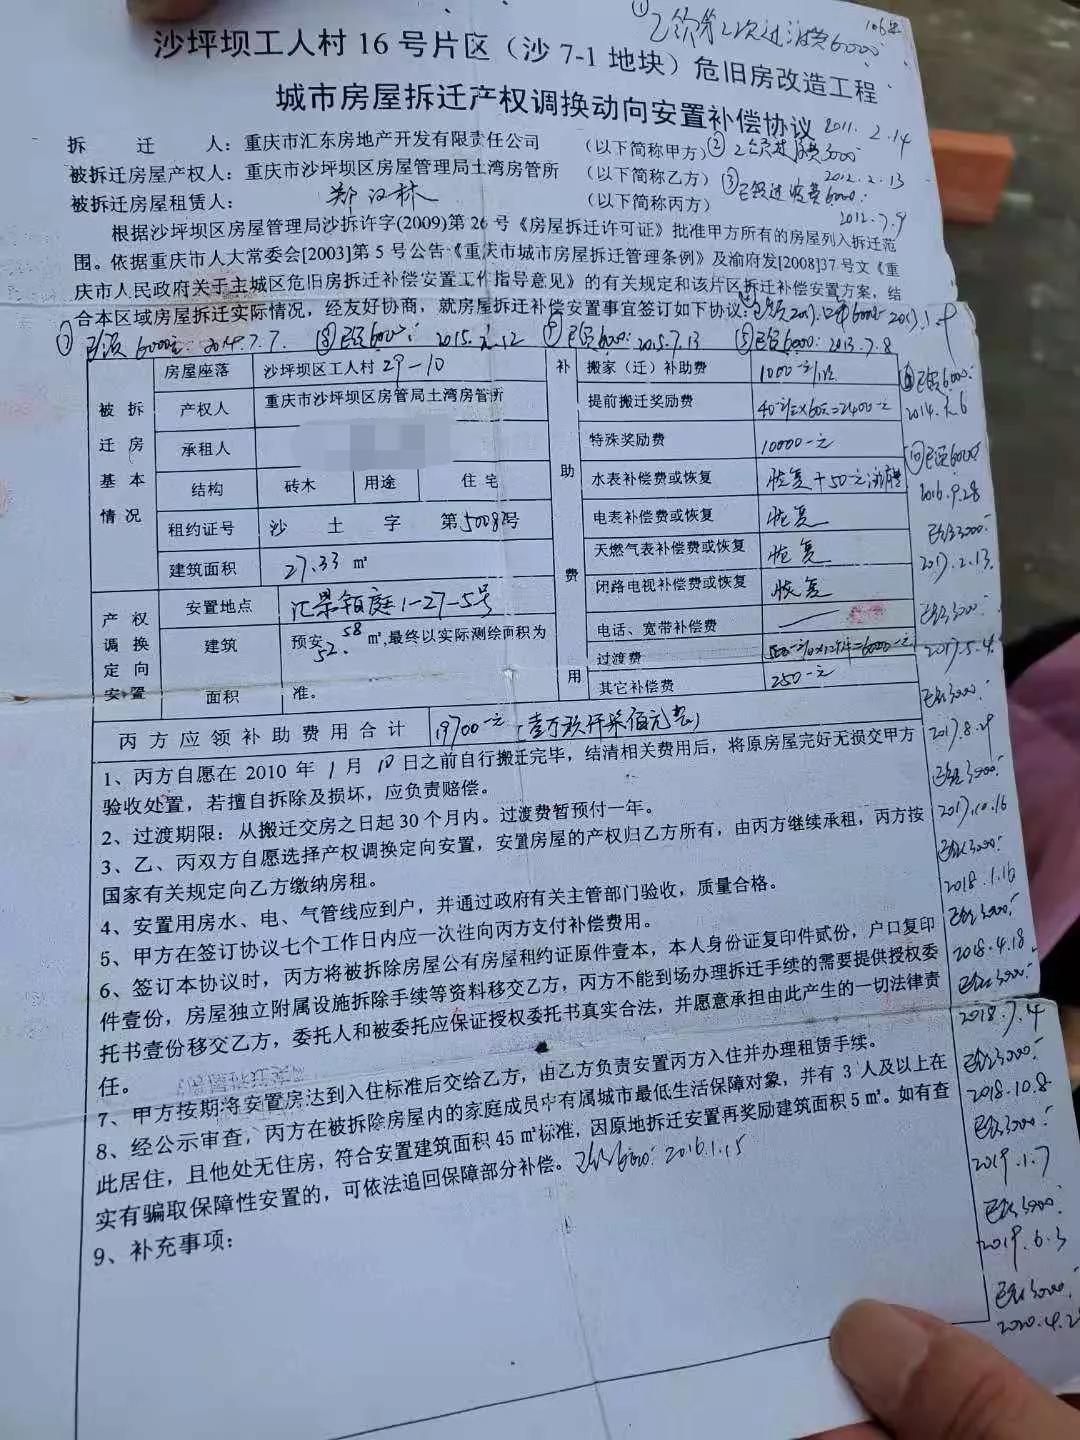 ①乙领第2次过渡费6000元
沙坪坝工人村16号片区（沙7-1地块）危旧房改造工程
城市房屋拆迁产权调换动向安置补偿协议 2011.2.14
拆迁人：重庆市汇东房地产开发有限责任公司 （以下简称甲方）② 3000
被拆迁房屋产权人：重庆市沙坪坝区房屋管理局土湾房管所 （以下简称乙方） 2012.2.13
③已领过渡费6000元
被拆迁房屋租赁人： （以下简称丙方） 2012.7.9
根据沙坪坝区房屋管理局沙拆许字(2009)第26号《房屋拆迁许可证》批准甲方所有的房屋列入拆迁范
围。依据重庆市人大常委会[2003]第5号公告《重庆市城市房屋拆迁管理条例》及渝府发[2008]37号文《重
庆市人民政府关于主城区危旧房拆迁补偿安置工作指导意见》的有关规定和该片区拆迁补偿安置方案，结
合本区域房屋拆迁实际情况，经友好协商，就房屋拆迁补偿安置事宜签订如下协议：
⑦已领6000元：2014.7.7. ⑧已领6000元：2015.1.12 已领6000：2015.7.13 ⑤已领6000：2013.7.8
被拆迁房基本情况
房屋座落 沙坪坝区工人村29-10
产权人 重庆市沙坪坝区房管局土湾房管所
承租人
结构 砖木 用途 住宅
租约证号 沙土字第5008号
建筑面积 27.33㎡
产权调换定向安置
安置地点 汇景钰庭1-27-5号
建筑面积 预安52.58㎡,最终以实际测绘面积为准。
补助费用
搬家（迁）补助费 1000元/户
提前搬迁奖励费 40元/天×60天=2400元
特殊奖励费 10000元
水表补偿费或恢复 恢复+50元
电表补偿费或恢复 恢复
天燃气表补偿费或恢复 恢复
闭路电视补偿费或恢复 恢复
电话、宽带补偿费
过渡费 500元/月×12个月=6000元
其它补偿费 250元
丙方应领补助费用合计 19700元（壹万玖仟柒佰元整）
1、丙方自愿在2010年1月10日之前自行搬迁完毕，结清相关费用后，将原房屋完好无损交甲方
验收处置，若擅自拆除及损坏，应负责赔偿。
2、过渡期限：从搬迁交房之日起30个月内。过渡费暂预付一年。
3、乙、丙双方自愿选择产权调换定向安置，安置房屋的产权归乙方所有，由丙方继续承租，丙方按
国家有关规定向乙方缴纳房租。
4、安置用房水、电、气管线应到户，并通过政府有关主管部门验收，质量合格。
5、甲方在签订协议七个工作日内应一次性向丙方支付补偿费用。
6、签订本协议时，丙方将被拆除房屋公有房屋租约证原件壹本，本人身份证复印件贰份，户口复印
件壹份，房屋独立附属设施拆除手续等资料移交乙方，丙方不能到场办理拆迁手续的需要提供授权委
托书壹份移交乙方，委托人和被委托应保证授权委托书真实合法，并愿意承担由此产生的一切法律责
任。
7、甲方按期将安置房达到入住标准后交给乙方，由乙方负责安置丙方入住并办理租赁手续。
8、经公示审查，丙方在被拆除房屋内的家庭成员中有属城市最低生活保障对象，并有3人及以上在
此居住，且他处无住房，符合安置建筑面积45㎡标准，因原地拆迁安置再奖励建筑面积5㎡。如有查
实有骗取保障性安置的，可依法追回保障部分补偿。已领6000：2016.1.15
9、补充事项：
已领6000：
2014.1.6
⑩已领6000
2016.9.28
已领3000：
2017.2.13.
已领3000：
2017.5.4.
已领3000：
2017.8.29
已领3000：
2017.10.16
已领3000：
2018.1.16
已领3000：
2018.4.18
已领3000：
2018.7.4
已领3000：
2018.10.8
已领3000：
2019.1.7
已领3000：
2019.6.3
已领3000：
2020.4.2